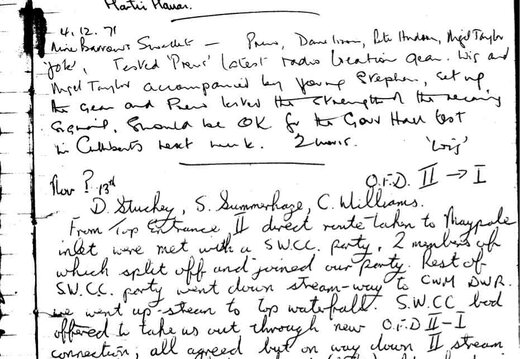 4.12.71
Nine Barrows Swallet — Prew, Dave Irwin, Pete Hudson, Nigel Taylor
'Joke', Tested 'Prew's' latest radio location gear. Wig and
Nigel Taylor accompanied by young Stephen, set up
the gear and Prew tested the strength of the receiving
signal, Should be OK for the Gour Hall test
in Cuthberts next week. 2 hours. 'Wig'
Nov ? 13th O.F.D. II → I
D. Stuckey, S. Summerhaze, C. Williams.
From Top Entrance, II direct route taken to Maypole
inlet were met with a S.W.C.C. party, 2 members of
which split off and joined our party. Rest of
S.W.C.C. party went down stream-way to CWM DWR.
we went up-stream to top waterfall. S.W.CC bod
offered to take us out through new O.F.D II-I
connection; all agreed but on way down II stream